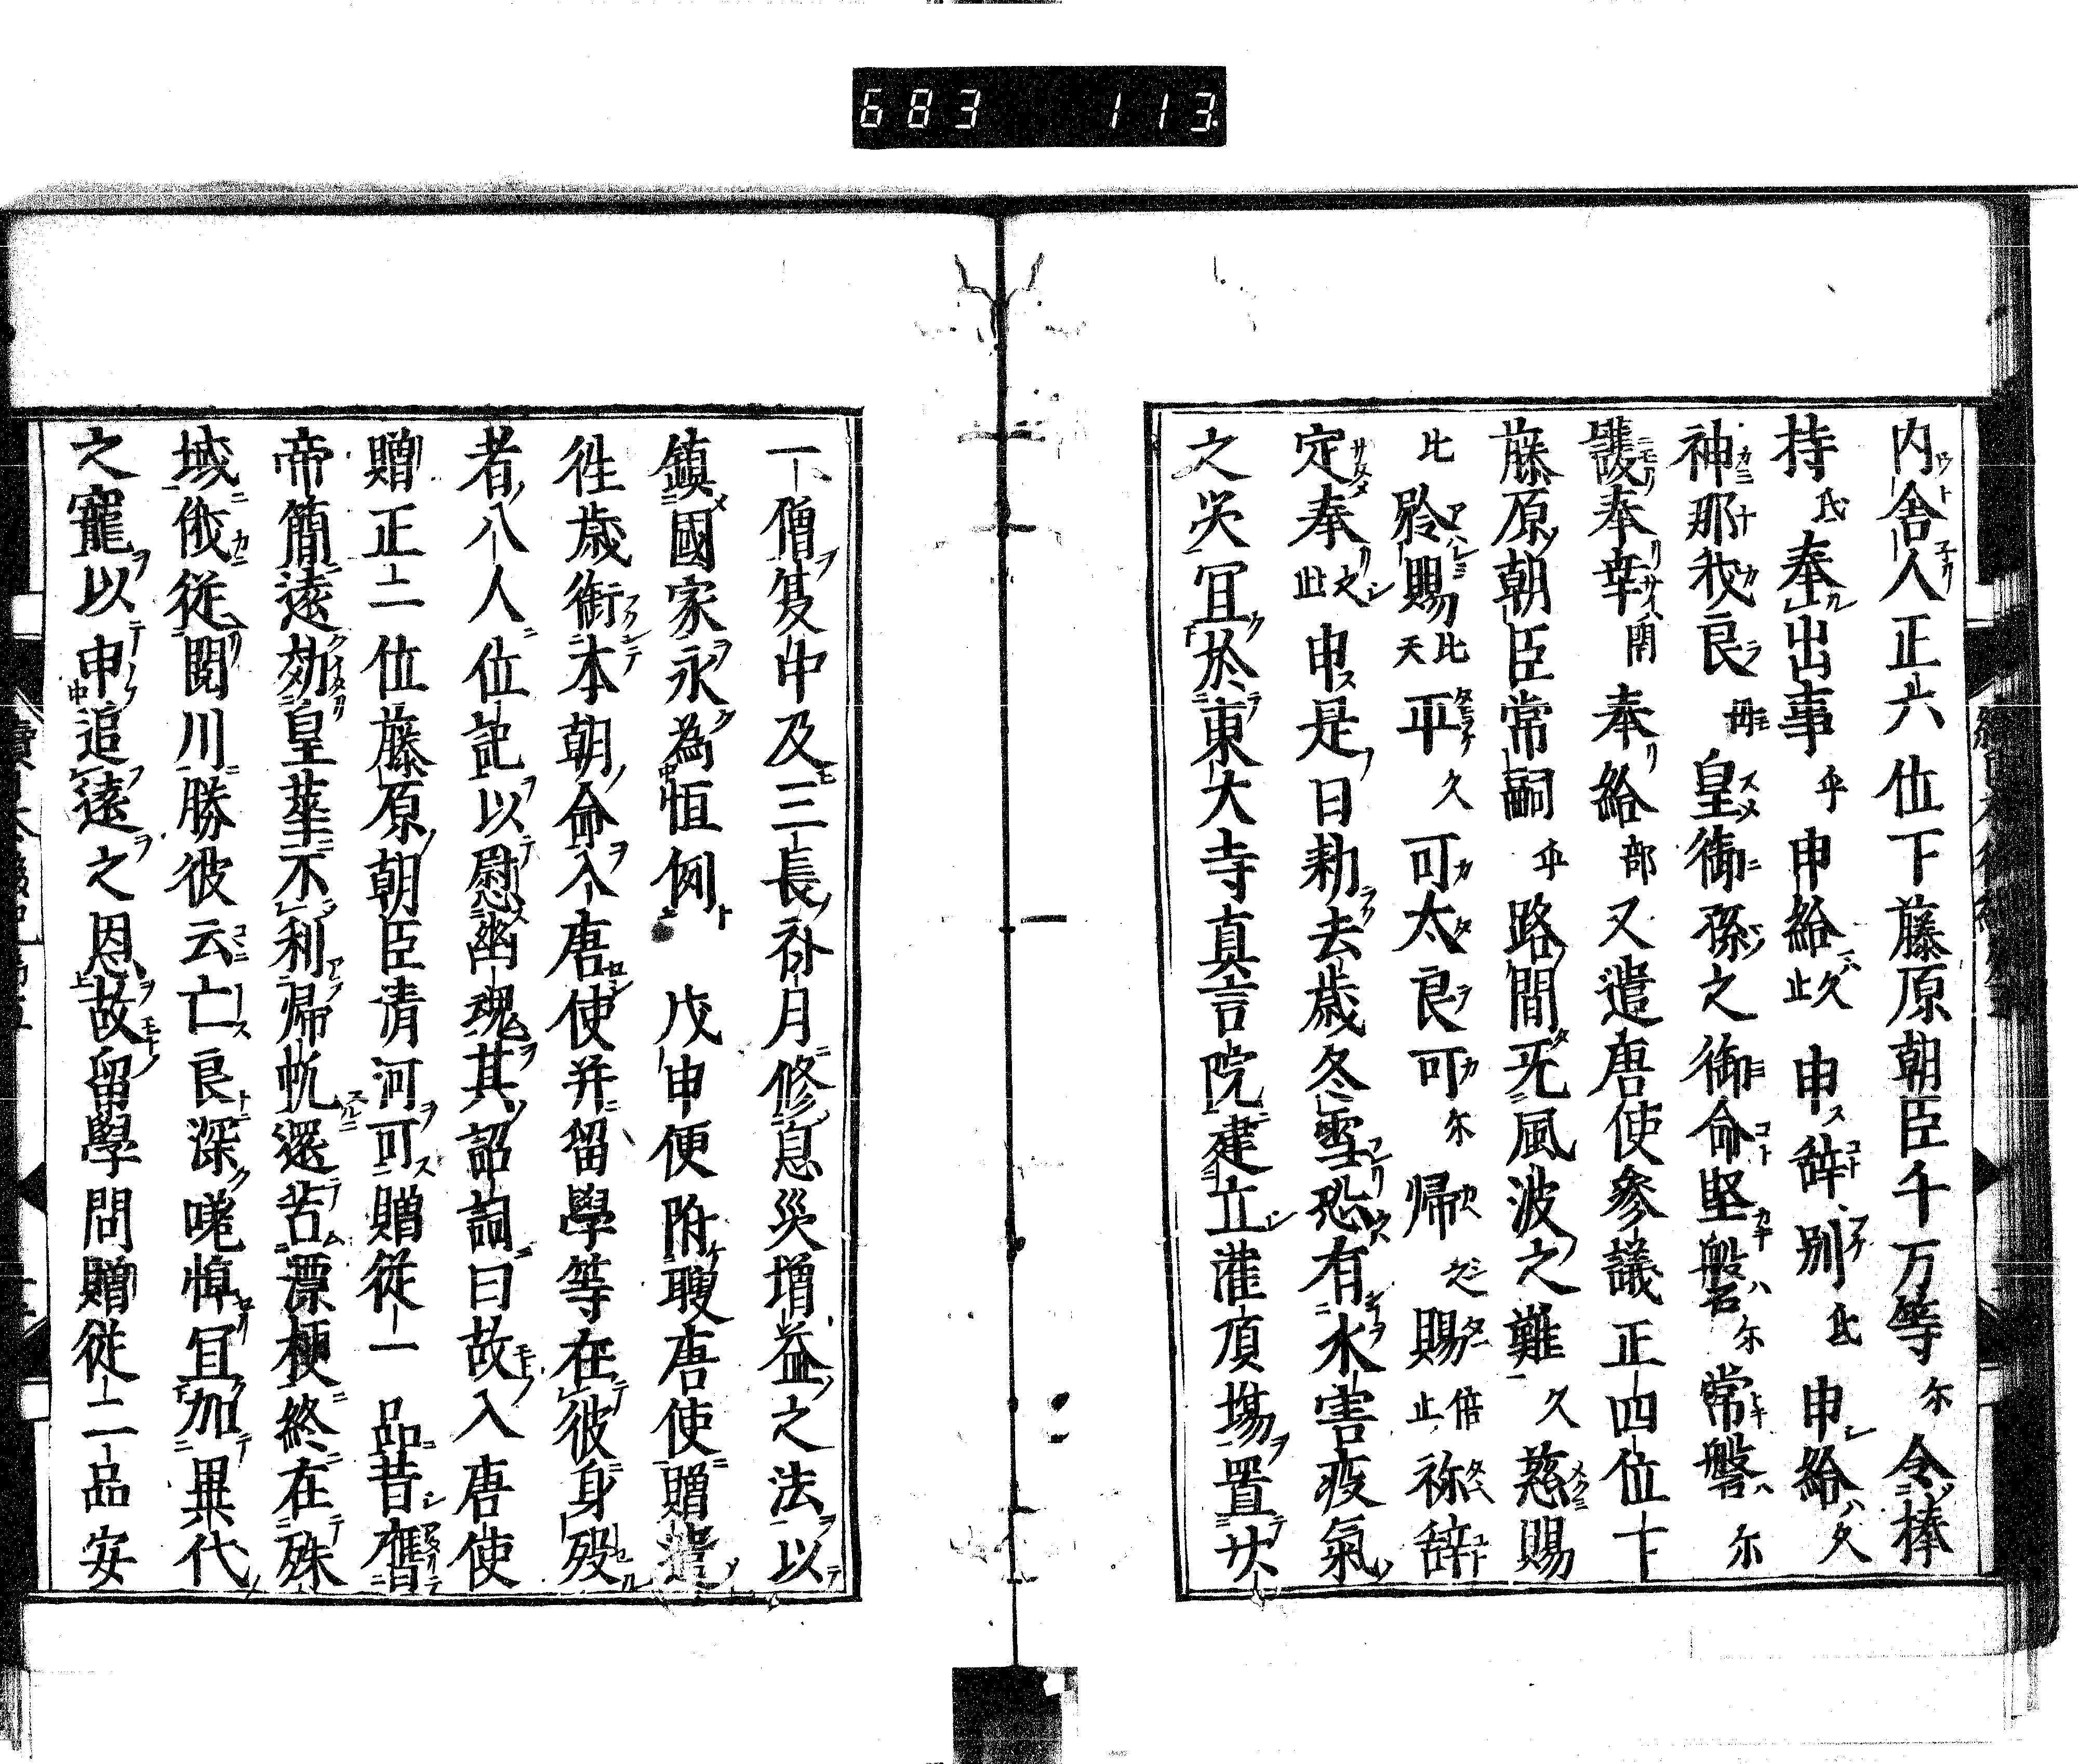 683 113
内舎人正六位下藤原朝臣千万等尓令捧
持氐奉出事乎申給久止申辞別氐申給久
神那我良毋皇御孫之御命堅磐尓常磐尓
護奉幸閇奉給部又遣唐使参議正四位下
藤原朝臣常嗣乎路間无風波之難久慈賜
比矜賜比天平久可太良可尓帰之賜倍止祢辞
定奉止申是日勅去歳冬雪恐有水害疫氣
之灾冝於東大寺真言院建立灌頂塲置廿
一僧夏中及三長斎月修息災増益之法以
鎮國家永為恒例 戊申便附聘唐使贈遣
徃歳銜本朝命入唐使并留學等在彼身殁
者八人位記以慰幽魂其詔詞曰故入唐使
贈正二位藤原朝臣清河可贈從一品昔膺
帝簡遠効皇華不利帰帆還苦漂梗終在殊
域俄従閲川勝彼云亡良深嗟悼冝加異代
之寵以申追遠之恩故留學問贈從二品安